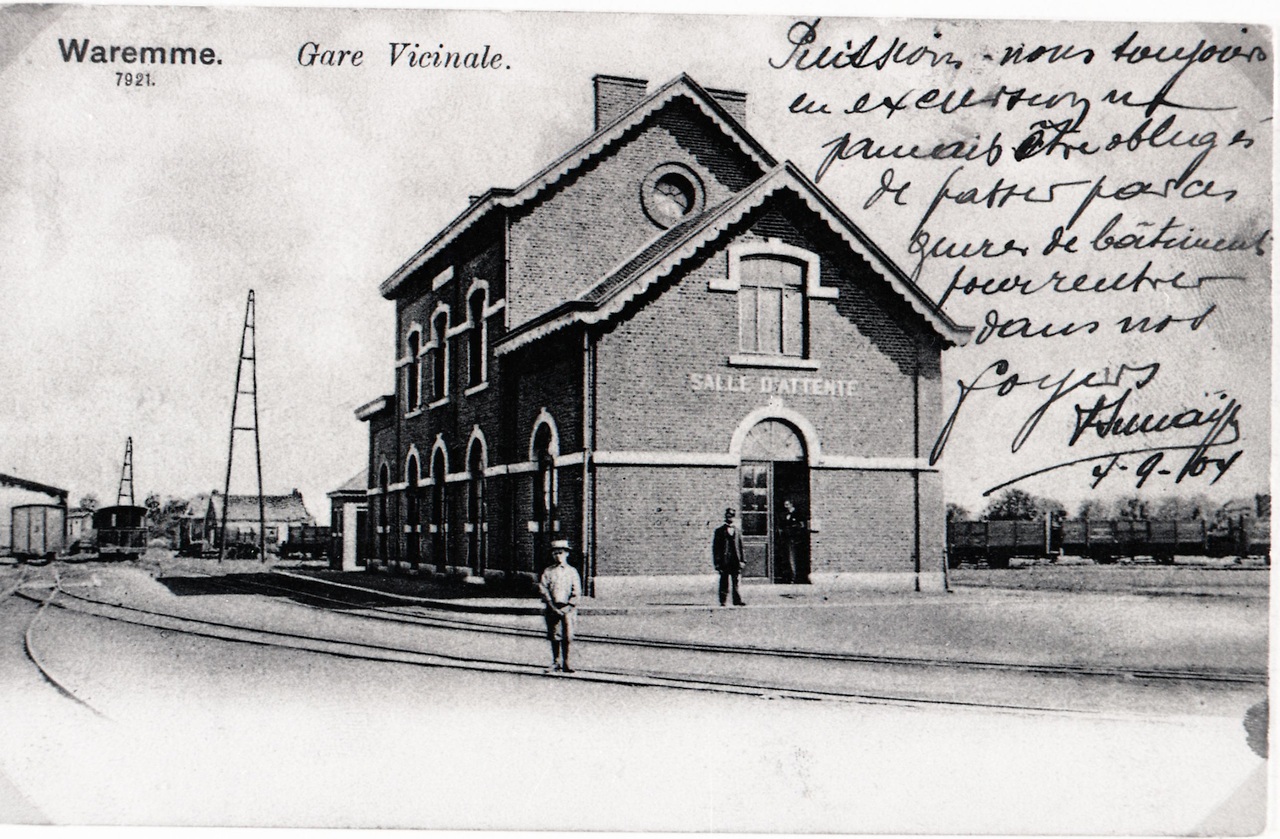 Waremme.
7921.
Gare Vicinale.
Puissions-nous toujours
en excursion ne
jamais être obligés
de passer par ces
de bâtiment
pour rentrer
dans nos
foyers
4-9-04
SALLE D'ATTENTE